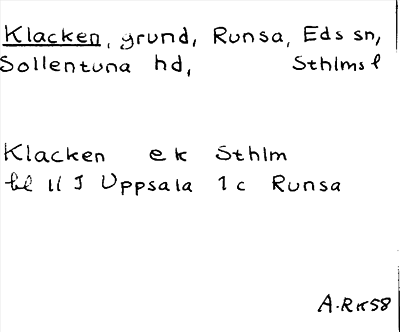 Klacken, grund, Runsa, Eds sn,
Sollentuna hd, Sthlms l
Klacken ek Sthlm
bl 11 J Uppsala 1c Runsa
A-RK58